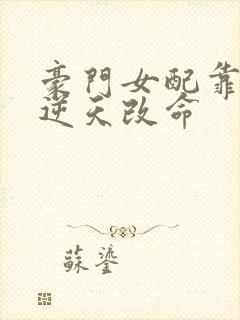 豪門女配靠
逆天改命
蘇鎏